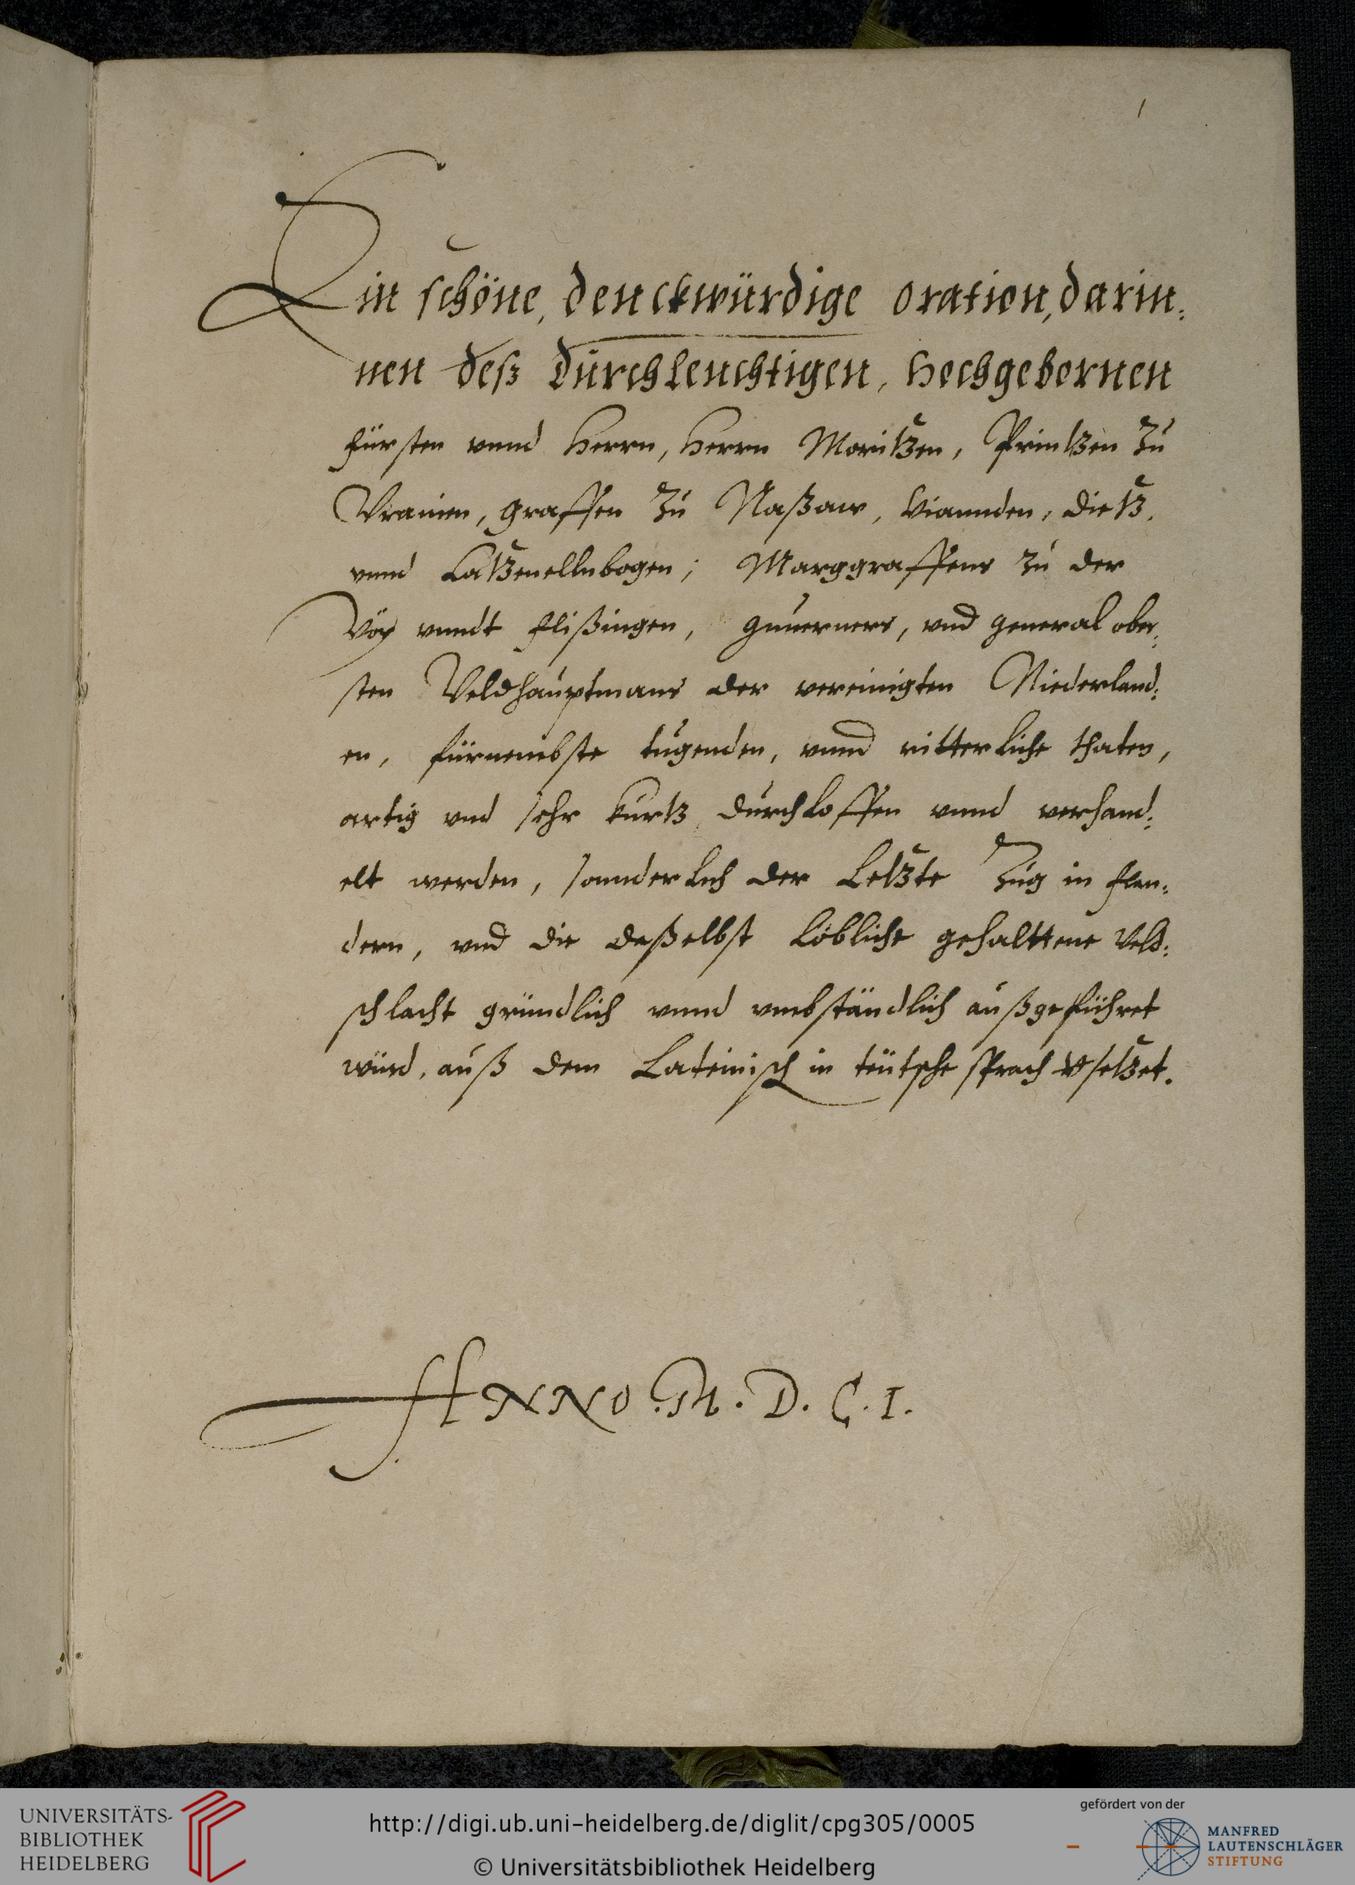 1
Ein schöne, denckwürdige oration, darin:
nen deß durchleuchtigen, hochgebornen
fürsten vnnd Herrn, Herrn Moritzen, Printzen zu
Vranien, graffen zu Naßaw, Viannden, Dietz,
vnnd Catzenellnbogen; Marggraffens zu der
Vör vnndt flißingen, guuerners, vnd general ober:
sten Veldhauptmans der vereinigten Niederland:
en, fürnembste tugenden, vnnd ritterliche thaten,
artig vnd sehr kurtz durchloffen vnnd verhand:
elt werden, sonnderlich der Letzte Zug in flan:
dern, vnd die daßelbst löbliche gehalttene Veld:
schlacht gründlich vnnd vmbständlich außgeführet
würd, auß dem Lateinisch in teütsche sprach vsetzet.
ANNO. M. D. C. I.
UNIVERSITÄTS-
BIBLIOTHEK
HEIDELBERG
http://digi.ub.uni-heidelberg.de/diglit/cpg305/0005
© Universitätsbibliothek Heidelberg
gefördert von der
MANFRED
LAUTENSCHLÄGER
STIFTUNG